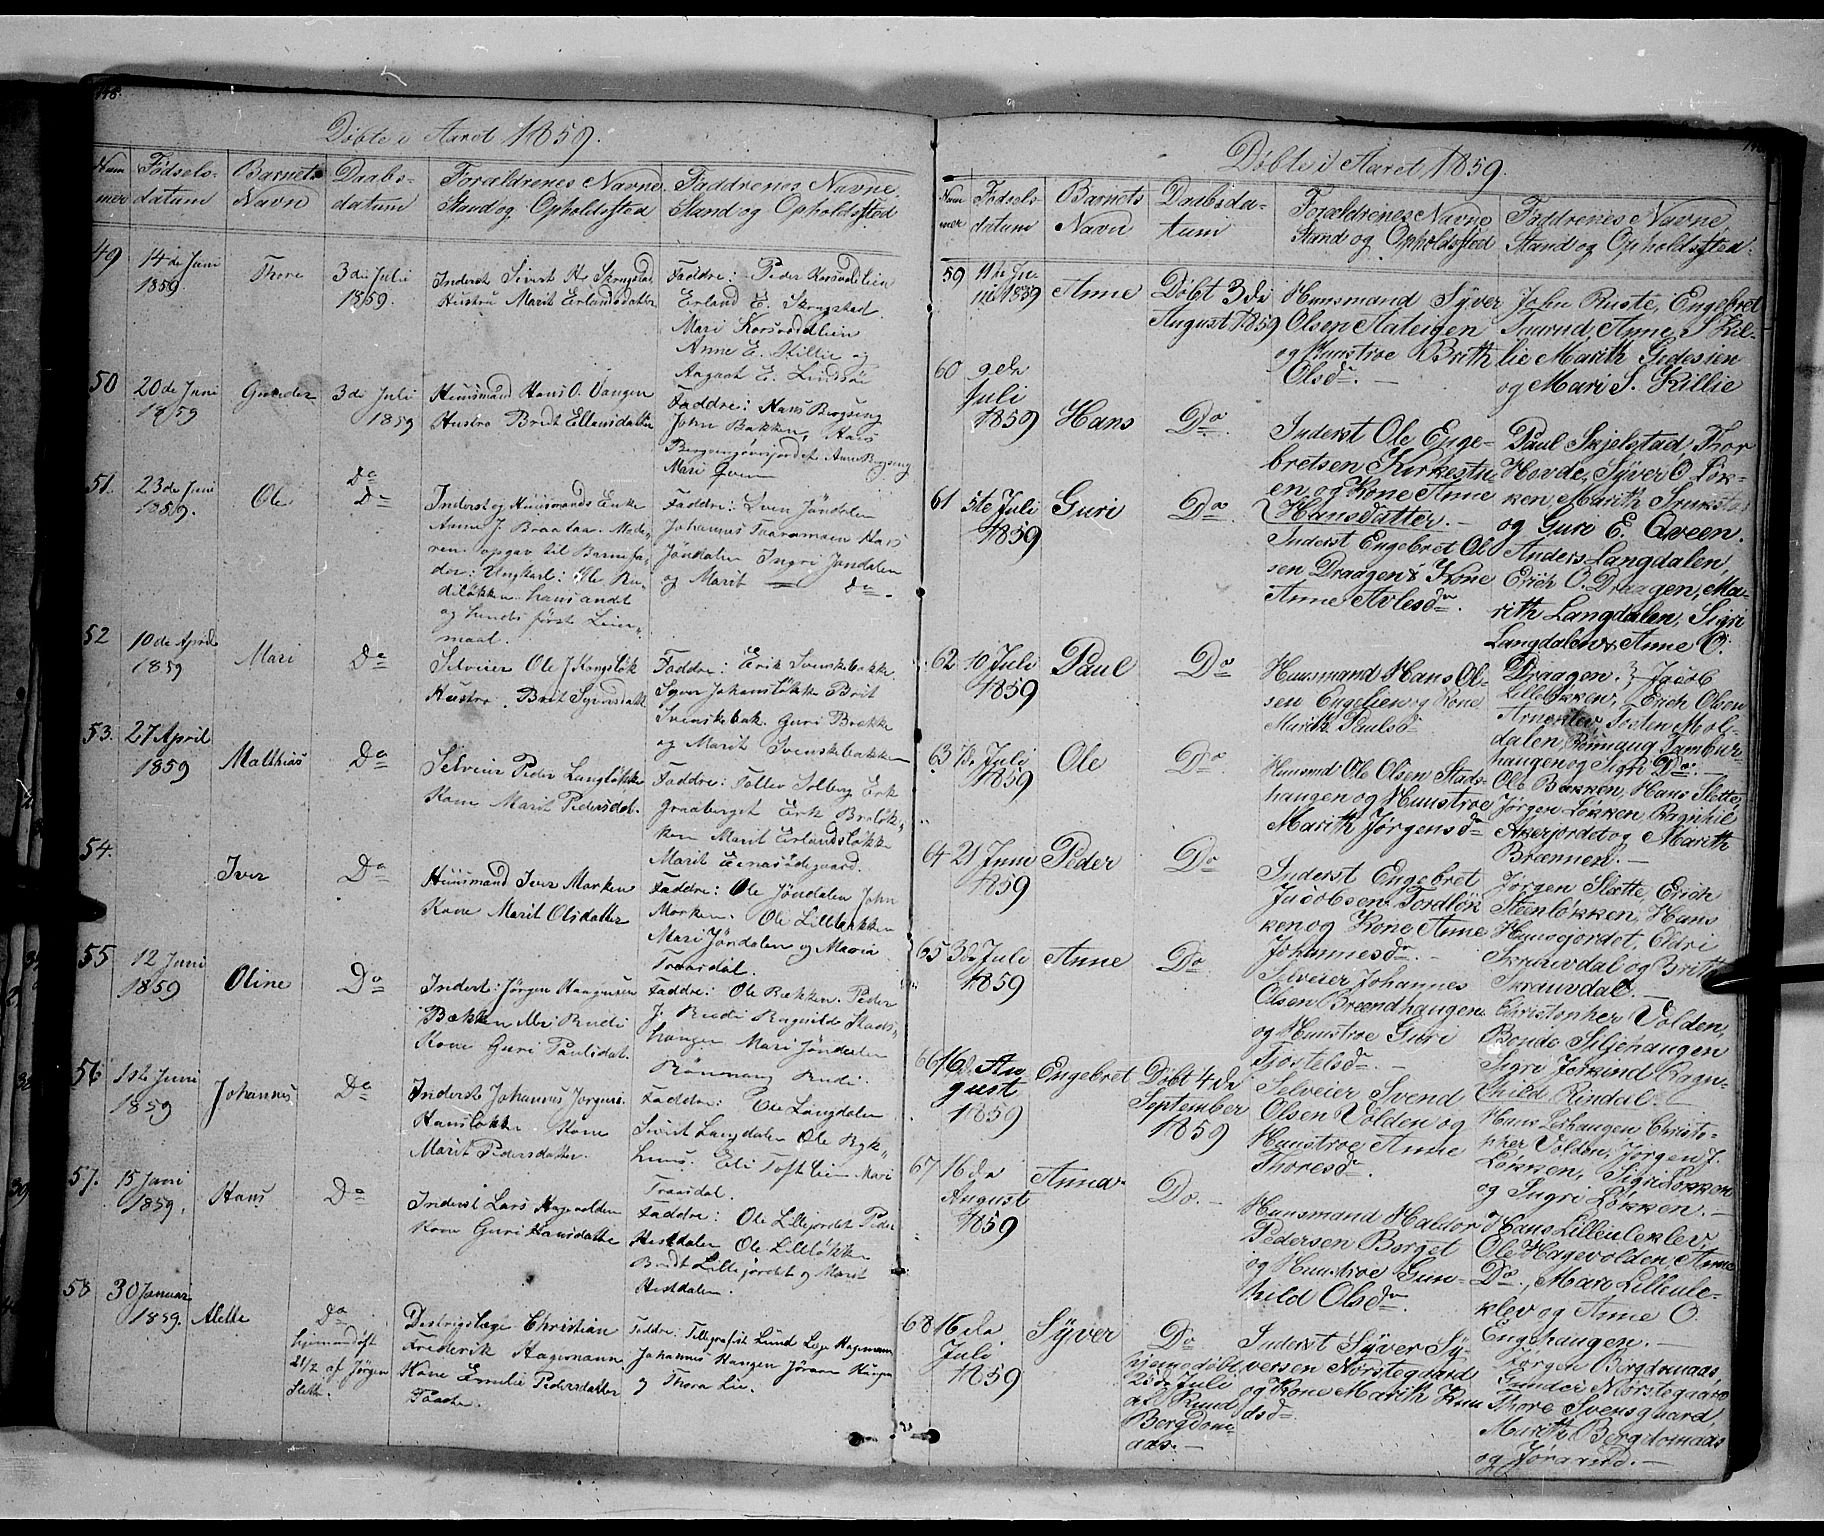 148.
Döbte i Aaret 1859.
Num
mer
Fødsels-
datum
Barnets
Navn
Daabs-
datum
Forældrenes Navne
Stand og Opholdssted
Faddrenes Navne
Stand og Opholdssted
49
14de Juni
1859.
Thore
3die Julii
1859.
Inderst Sivert H. Skrugstad
Hustru Marit Erlandsdatter
Faddre: Peder Korsvoldlien
Erland E. Skrugstad.
Mari Korsvoldlien
Anne E. Killie og
Aagaat E. Lindsöe
50
20de Juni
1859
Gunder
3di Juli
1859
Huusmand Hans O. Vangen
Hustro Brit Ellansdatter
Faddre: Hans Bregsing
John Bakken, Hans
Mari Qveen
51.
23de Juni
1859.
Ole
Do
Do
Inderst og Huusmands Enke
Anne J Braaten. Mode-
ren opgav til Barnefa-
der: Ungkarl: Ole Ru-
diløkken hans andet
og hendes første Leier-
maal.
Faddre: Sven Jöndalen
Johannes Traasmoen Hans
Jöndalen Ingri Jondalen
og Marit — do -
52
10de April
1859
Mari
Do
Selveier Ole J. Haugsløk
Hustro. Brit Syversdatt
Faddre: Erik Svenskebakke
Syver Johansløkke Brit
Svenskebak. Guri Brække
og Marit Svenskebakken
53.
27 April
1859
Matthias
Do
Selveier Peder Langløkke
Kone Marit Pedersdat.
Faddre: Tollev Solberg Erk
Graaberget Erk Braløk-
ken Marit Erlandsløkke
Marit Einastdegaard.
54.
Iver
Do
Huusmand Iver Morken
Kone Marit Olsdatter
Faddre: Ole Jöndalen John
Morken. Ole Lilleløkken
Mari Jöndalen og Maria
Traasdal.
55
12 Juni
1859
Oline
Do
Inderst: Jörgen Haagensen
Bækken Mri Rudi
Kone Guri Paulsdat.
Faddre: Ole Bækken. Peder
J. Rudi Ragnilde Stads-
haugen Mari Jöndalen
Rönnaug Rudi.
56
1ste Juni
1859
Johannes
Do
Inderste Johannes Jorgens.
Hansløkken Kone
Marit Pedersdatter.
Faddre: Ole Langdalen
Sivert Langdalen Ole Byk-
huus. Eli Toftlien Mari
Traasdal.
57.
15 Juni
1859.
Hans
Do
Inderst Lars Hagevolden
Kone Guri Hansdatte
Faddre: Ole Lillejordet Peder
Hestdalen Ole Lilleløkken
Brit Lillejordet og Marit
Hestdalen.
58
30 Januar
1859.
Alette
Do
hjemmedöbt
21/2 af Jörgen
Slette.
Destrigslæge Christian
Frederik Hagemann
Kone Emelie Pedersdatter
Faddre: Tellegrafist Lund Læge Hagemann
Johannes Haugen Jöram Haugen
og Thora Lie.
Döbte i Aaret 1859.
Num
mer
Fødsels-
datum
Barnets
Navn
Daabsda-
tum
Forældrenes Navne
Stand og Opholdssted
Faddrenes Navne
Stand og Opholdssted.
59
11te Ju-
nii 1859
Anne
Döbt 3die
August 1859
Huusmand Syver
Olsen Stateigen
og Huustroe Brith
Olsdr. -
John Ruste, Engebret
Taarud, Anne S. Kil-
lie Marith
og Mari S. Killie
60
9de
Juli
1859
Hans
Do
Inderst Ole Enge-
bretsen Kirkestu-
en og Kone Anne
Hansdatter. -
Paul Skjelstad, Thor
Hovde, Syver O Løk-
ken, Marith
og Guri E. Qveen.
61
5te Juli
1859
Guri
Do
Inderst Engebret Ol
sen Draagen & Kone
Anne Avlesdr.
Anders Langdalen,
Erich O. Draagen, Ma-
rith Langdalen, Sigri
Langdalen & Anne O.
Draagen.
62
10 Juli
1859
Paul
Do
Huusmand Hans Ol-
sen Engelien og Kone
Marith Paulsdr
Jacob
Lilleløkken, Erich Olsen
Arneklev Tosten Mol-
dalen, Rönnaug Tambur-
haugen og Sigri Do. -
63
Juli
1859
Ole
Do
Huusmd Ole Olsen Stads-
haugen og Huustroe
Marith Jörgensdr
Ole Bækken, Hans Slette,
Jörgen Løkken Ragnhil
Akerjordet og Marith
Brænnen. -
64
21 Juni
1859
Peder
Do
Inderst Engebret
Jacobsen Tordløk
ken og Kone Anne
Johannesdr. -
Jörgen Slette, Erich
Steenløkken, Hans
Huusejordet, Eldri
Skaavdal og Brith
Skaavdal. -
65
3die Juli
1859
Anne
Do
Selveier Johannes
Olsen Brændhaugen
og Huustroe Guri
Tjostelsdr. -
Christopher Volden,
Bonde Siljehaugen
Sigri Jorkind Ragn-
hild Rindal -
66
16de Au
gust
1859
Engebret
Döbt 4de
September
1859
Selveier Svend
Olsen Volden og
Huustroe Anne
Thoresdr.
Hans Lishaugen, Christo-
pher Volden, Jörgen J.
Løkken, Sigri Løkken
og Ingri Løkken. -
67
16de
August
1859
Anna
Do. -
Huusmand Haldor
Pedersen Borget
og Huustroe Gun-
hild Olsdr.
Hans Lilleuleklev,
Ole Hagevolden, Anne
Do., Mari Lilleule-
klev og Anne O.
Engehaugen. -
68
16de
Juli
1859
Syver
Do
hjemedöbt
25de Juli
af Knud
Bergdom-
aas. -
Inderst Syver Sy-
versen Norstegaard
og Kone Marith Knu
dsdr
Jörgen Bergdomaas,
Gunder Norstegaard
Thore Svensgaard,
Marith Bergdomaas
og Jörand. -